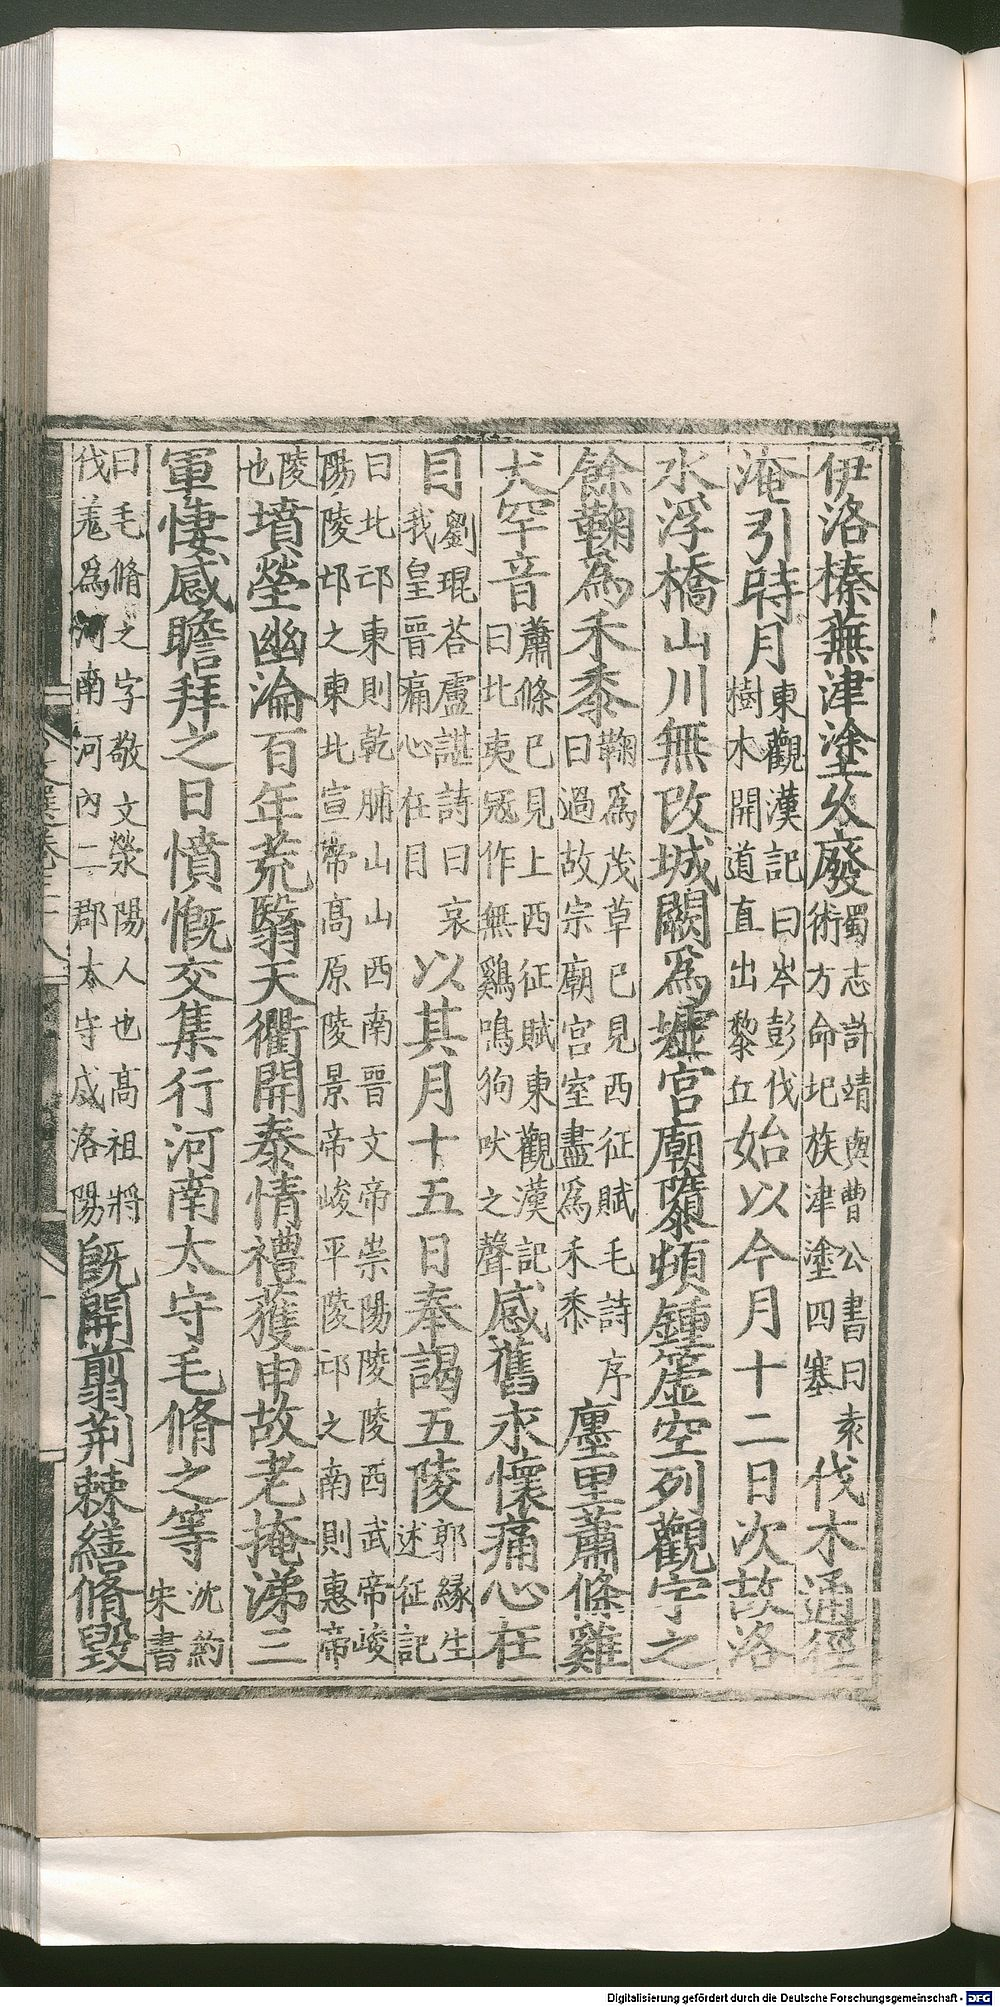 伊洛榛蕪津塗久廢蜀志許靖與曹公書曰袁術方命圮族津塗四塞伐木通徑
淹引時月東觀漢記曰岑彭伐樹木開道直出黎丘始以今月十二日次故洛
水浮橋山川無改城闕爲墟宮廟隳頓鍾簴空列觀宇之
餘鞠爲禾黍鞠爲茂草已見西征賦毛詩序曰過故宗廟宮室盡爲禾黍廛里蕭條雞
犬罕音蕭條已見上西征賦東觀漢記曰北夷冦作無鷄鳴狗吠之聲感舊永懷痛心在
目劉琨荅盧諶詩曰哀我皇晉痛心在目以其月十五日奉謁五陵郭緣生述征記
曰北邙東則乾脯山山西南晉文帝崇陽陵陵西武帝峻陽陵邙之東北宣帝髙原陵景帝峻平陵邙之南則惠帝
陵也墳塋幽淪百年荒翳天衢開泰情禮獲申故老掩涕三
軍悽感瞻拜之日憤慨交集行河南太守毛脩之等沈約宋書
曰毛脩之字敬文滎陽人也髙祖將伐羗爲河南河內二郡太守戍洛陽旣開翦荆棘繕脩毀
Digitalisierung gefördert durch die Deutsche Forschungsgemeinschaft - DFG